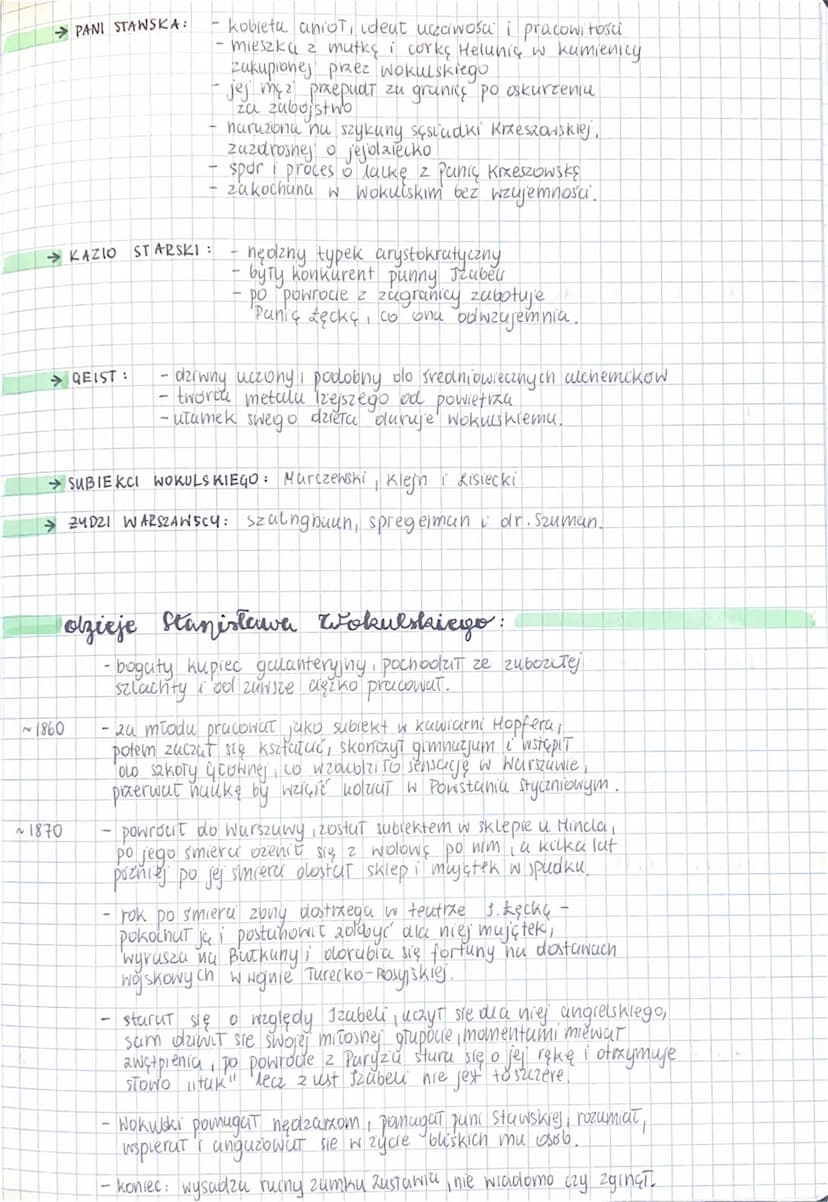 → PANI STAWSKA: - kobieta anioł, ideał uczciwości i pracowitości
- mieszka z matką i córką Helunią w kamienicy
zakupionej przez Wokulskiego
- jej mąż przepadł za granicą po oskarżeniu
za zabójstwo
- narażona na szykany sąsiadki Krzeszowskiej,
zazdrosnej o jej dziecko
- spór i proces o lalkę z Panią Krzeszowską
- zakochana w Wokulskim bez wzajemności.
→ KAZIO STARSKI: - nędzny typek arystokratyczny
- były konkurent panny Izabeli
- po powrocie z zagranicy zabatuje
Panią Łęcką, co ona odwzajemnia.
→ GEIST: - dziwny uczony, podobny do średniowiecznych alchemcków
- twórca metalu lżejszego od powietrza
- ułamek swego dzieła daruje Wokulskiemu.
→ SUBIEKCI WOKULSKIEGO: Marczewski, Klejn i Lisiecki
→ ŻYDZI WARSZAWSCY: Szalngbaun, Spregeiman i dr. Szuman.
dzieje Stanisława Wokulskiego:
- bogaty kupiec galanteryjny, pochodził ze zubożałej
szlachty i od zawsze ciężko pracował.
~1860 - za młodu pracował jako subiekt w kawiarni Hopfera,
potem zaczął się kształcać, skończył gimnazjum i wstąpił
do szkoły głównej, co wzbudziło sensację w Warszawie,
przerwał naukę by wziąść udział w Powstaniu Styczniowym.
~1870 - powrócił do Warszawy, został subiektem w sklepie u Mincla,
po jego śmierci ożenił się z wdową po nim, a kilka lat
później po jej śmierci dostał sklep i majątek w spadku.
- rok po śmierci żony dostrzega w teatrze I. Łęcką -
pokochał ją i postanowił zdobyć dla niej majątek,
wyrusza na Bałkany i dorabia się fortuny na dostawach
wojskowych w wojnie Turecko-Rosyjskiej.
- starał się o względy Izabeli, uczył się dla niej angielskiego,
sam dziwił się swojej miłosnej głupocie, momentami miewał
zwątpienia, po powrocie z Paryża stara się o jej rękę i otrzymuje
słowo "tak" lecz z ust Izabeli nie jest to szczere.
- Wokulski pomagał nędzarzom, pomagał pani Stawskiej, rozumiał,
wspierał i angażował się w życie bliskich mu osób.
- koniec: wysadza ruiny zamku Zasławia, nie wiadomo czy zginął.